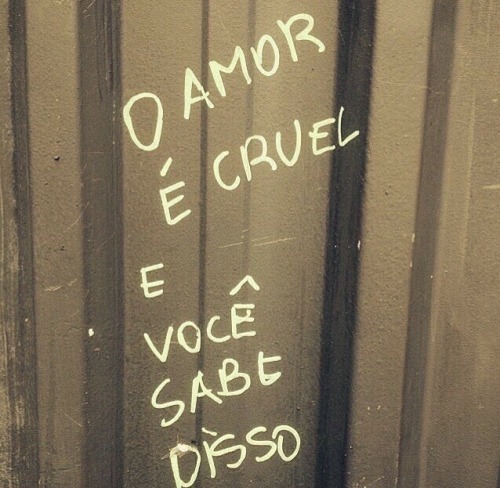 O AMOR
É CRUEL
E
VOCÊ
SABE
DISSO